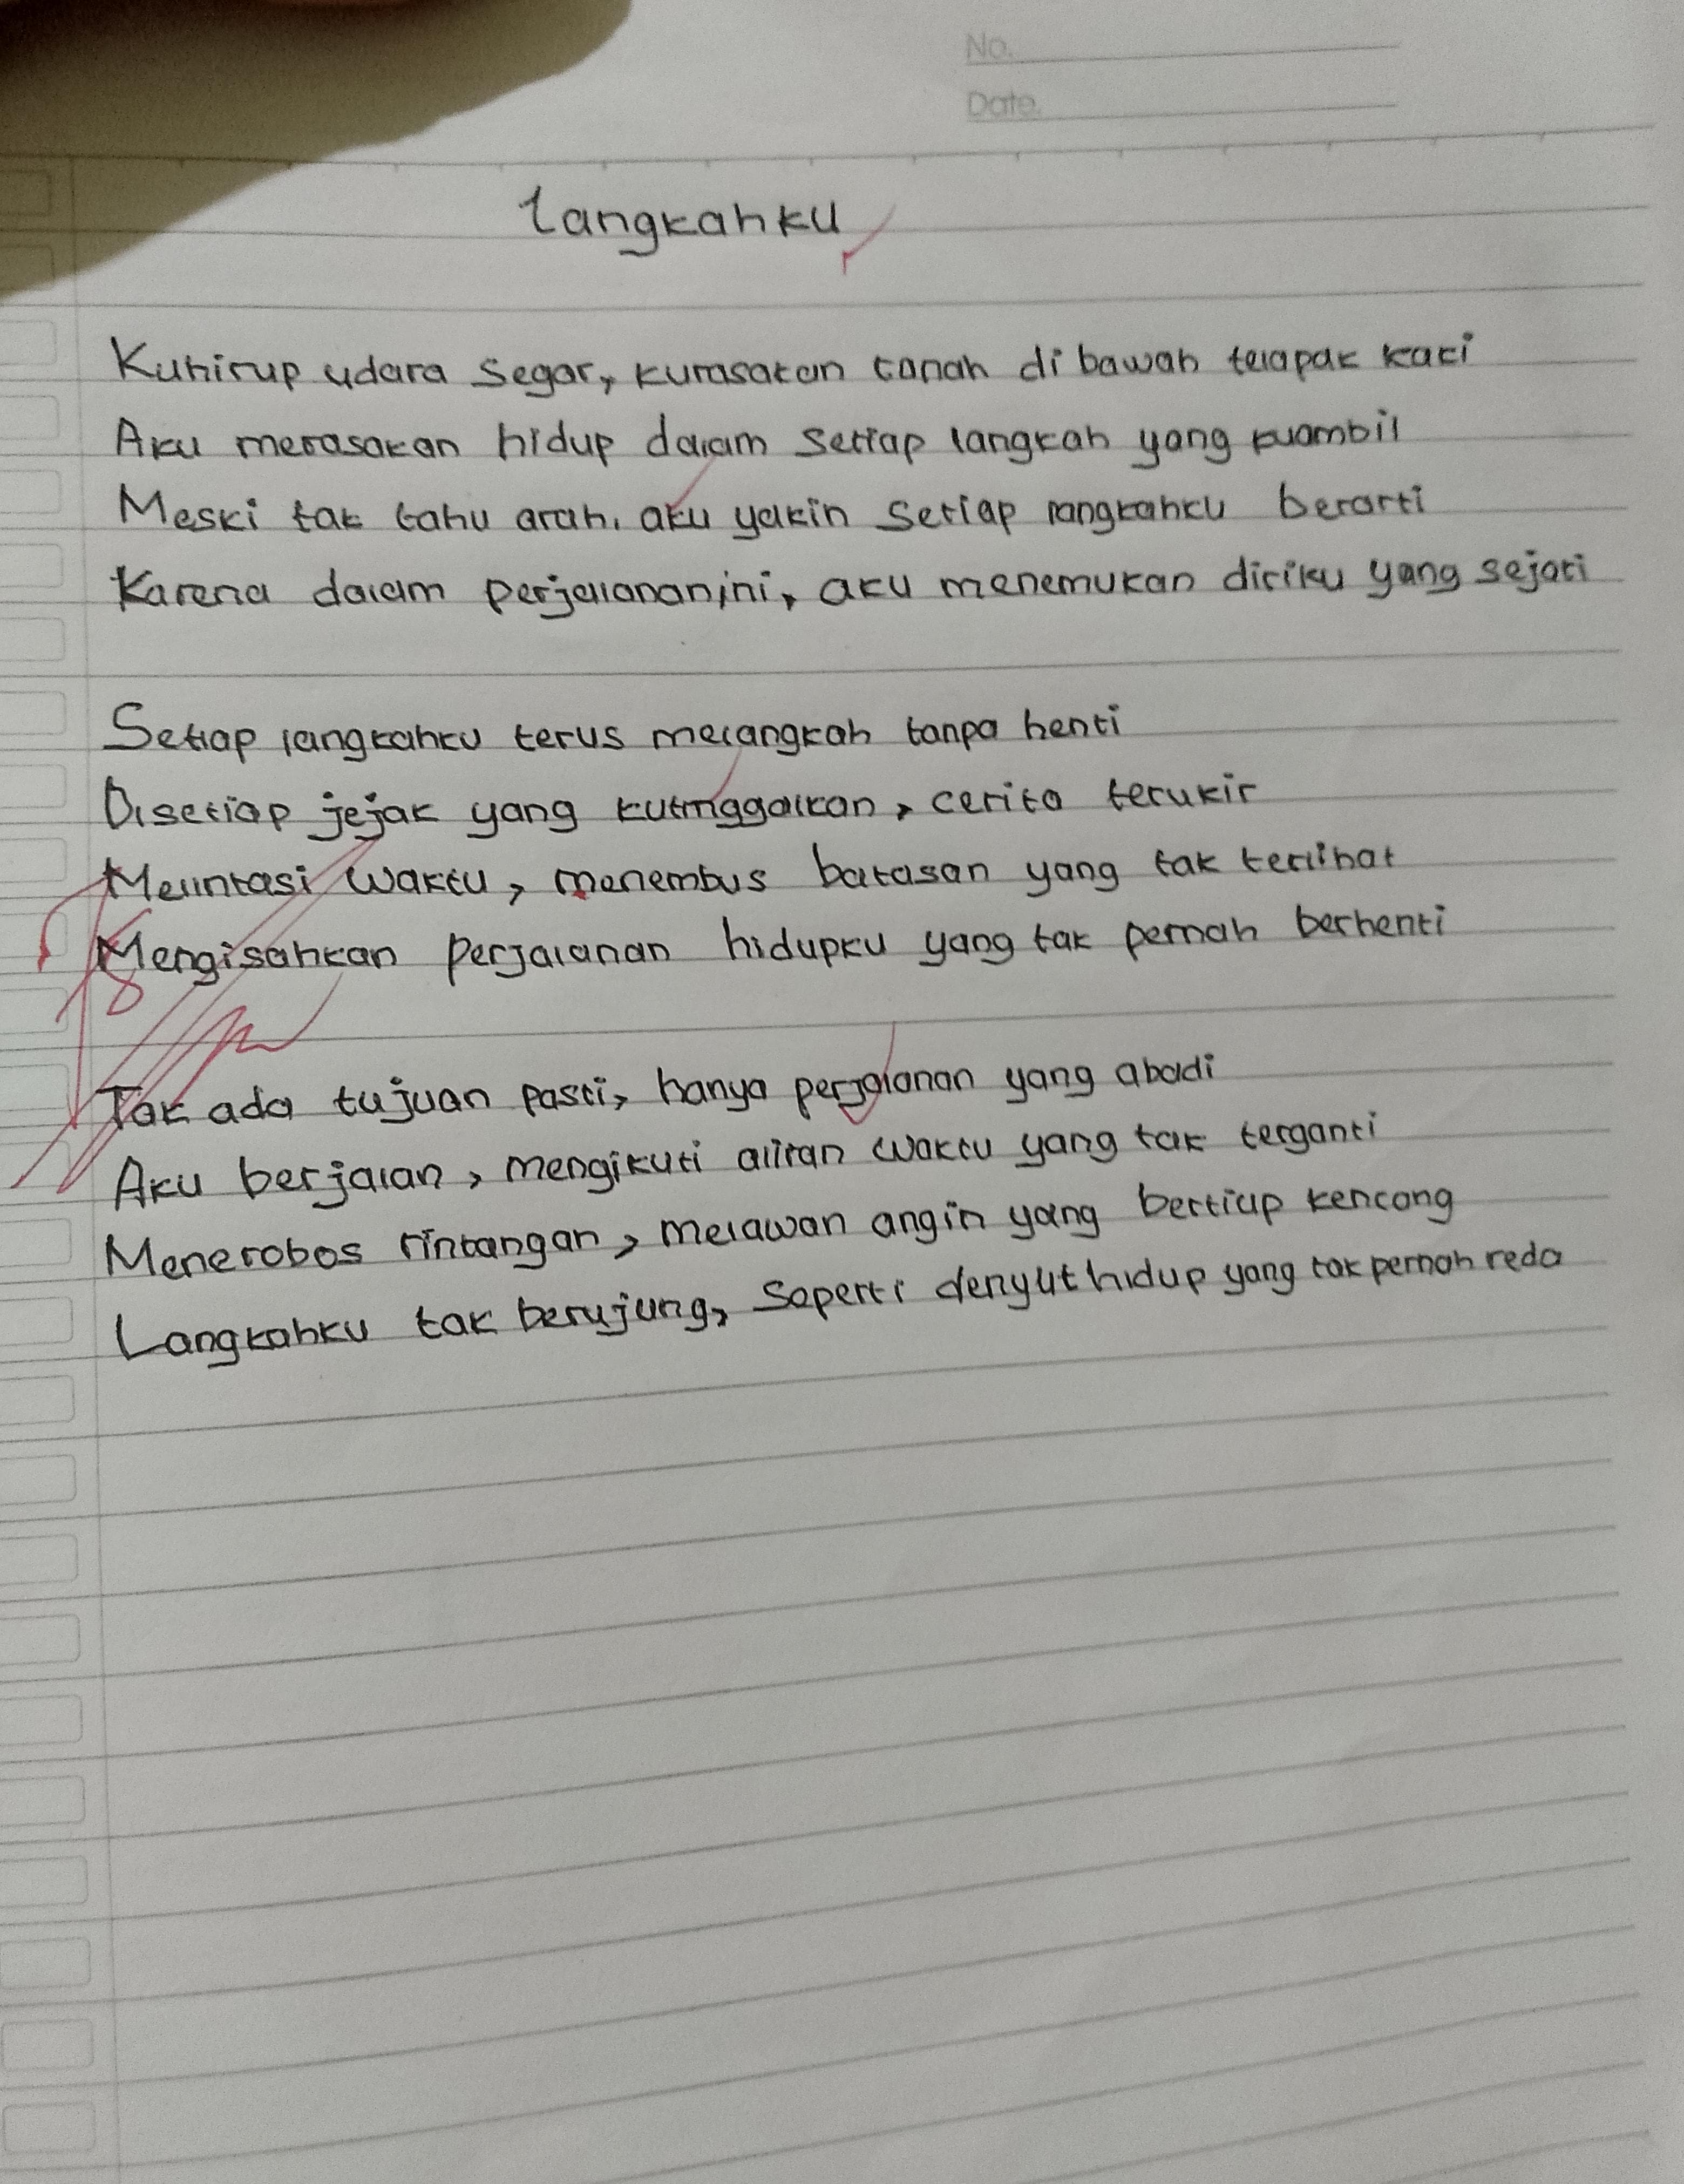 No.
Date.
Langkahku
Kuhirup udara segar, kurasakan tanah di bawah telapak kaki
Aku merasakan hidup dalam setiap langkah yang kuambil
Meski tak tahu arah, aku yakin setiap langkahku berarti
Karena dalam perjalanan ini, aku menemukan diriku yang sejati
Setiap langkahku terus melangkah tanpa henti
Disetiap jejak yang kutinggalkan, cerita terukir
Melintasi waktu, menembus batasan yang tak terlihat
Mengisahkan perjalanan hidupku yang tak pernah berhenti
Tak ada tujuan pasti, hanya perjalanan yang abadi
Aku berjalan, mengikuti aliran waktu yang tak terganti
Menerobos rintangan, melawan angin yang bertiup kencang
Langkahku tak berujung, seperti denyut hidup yang tak pernah reda